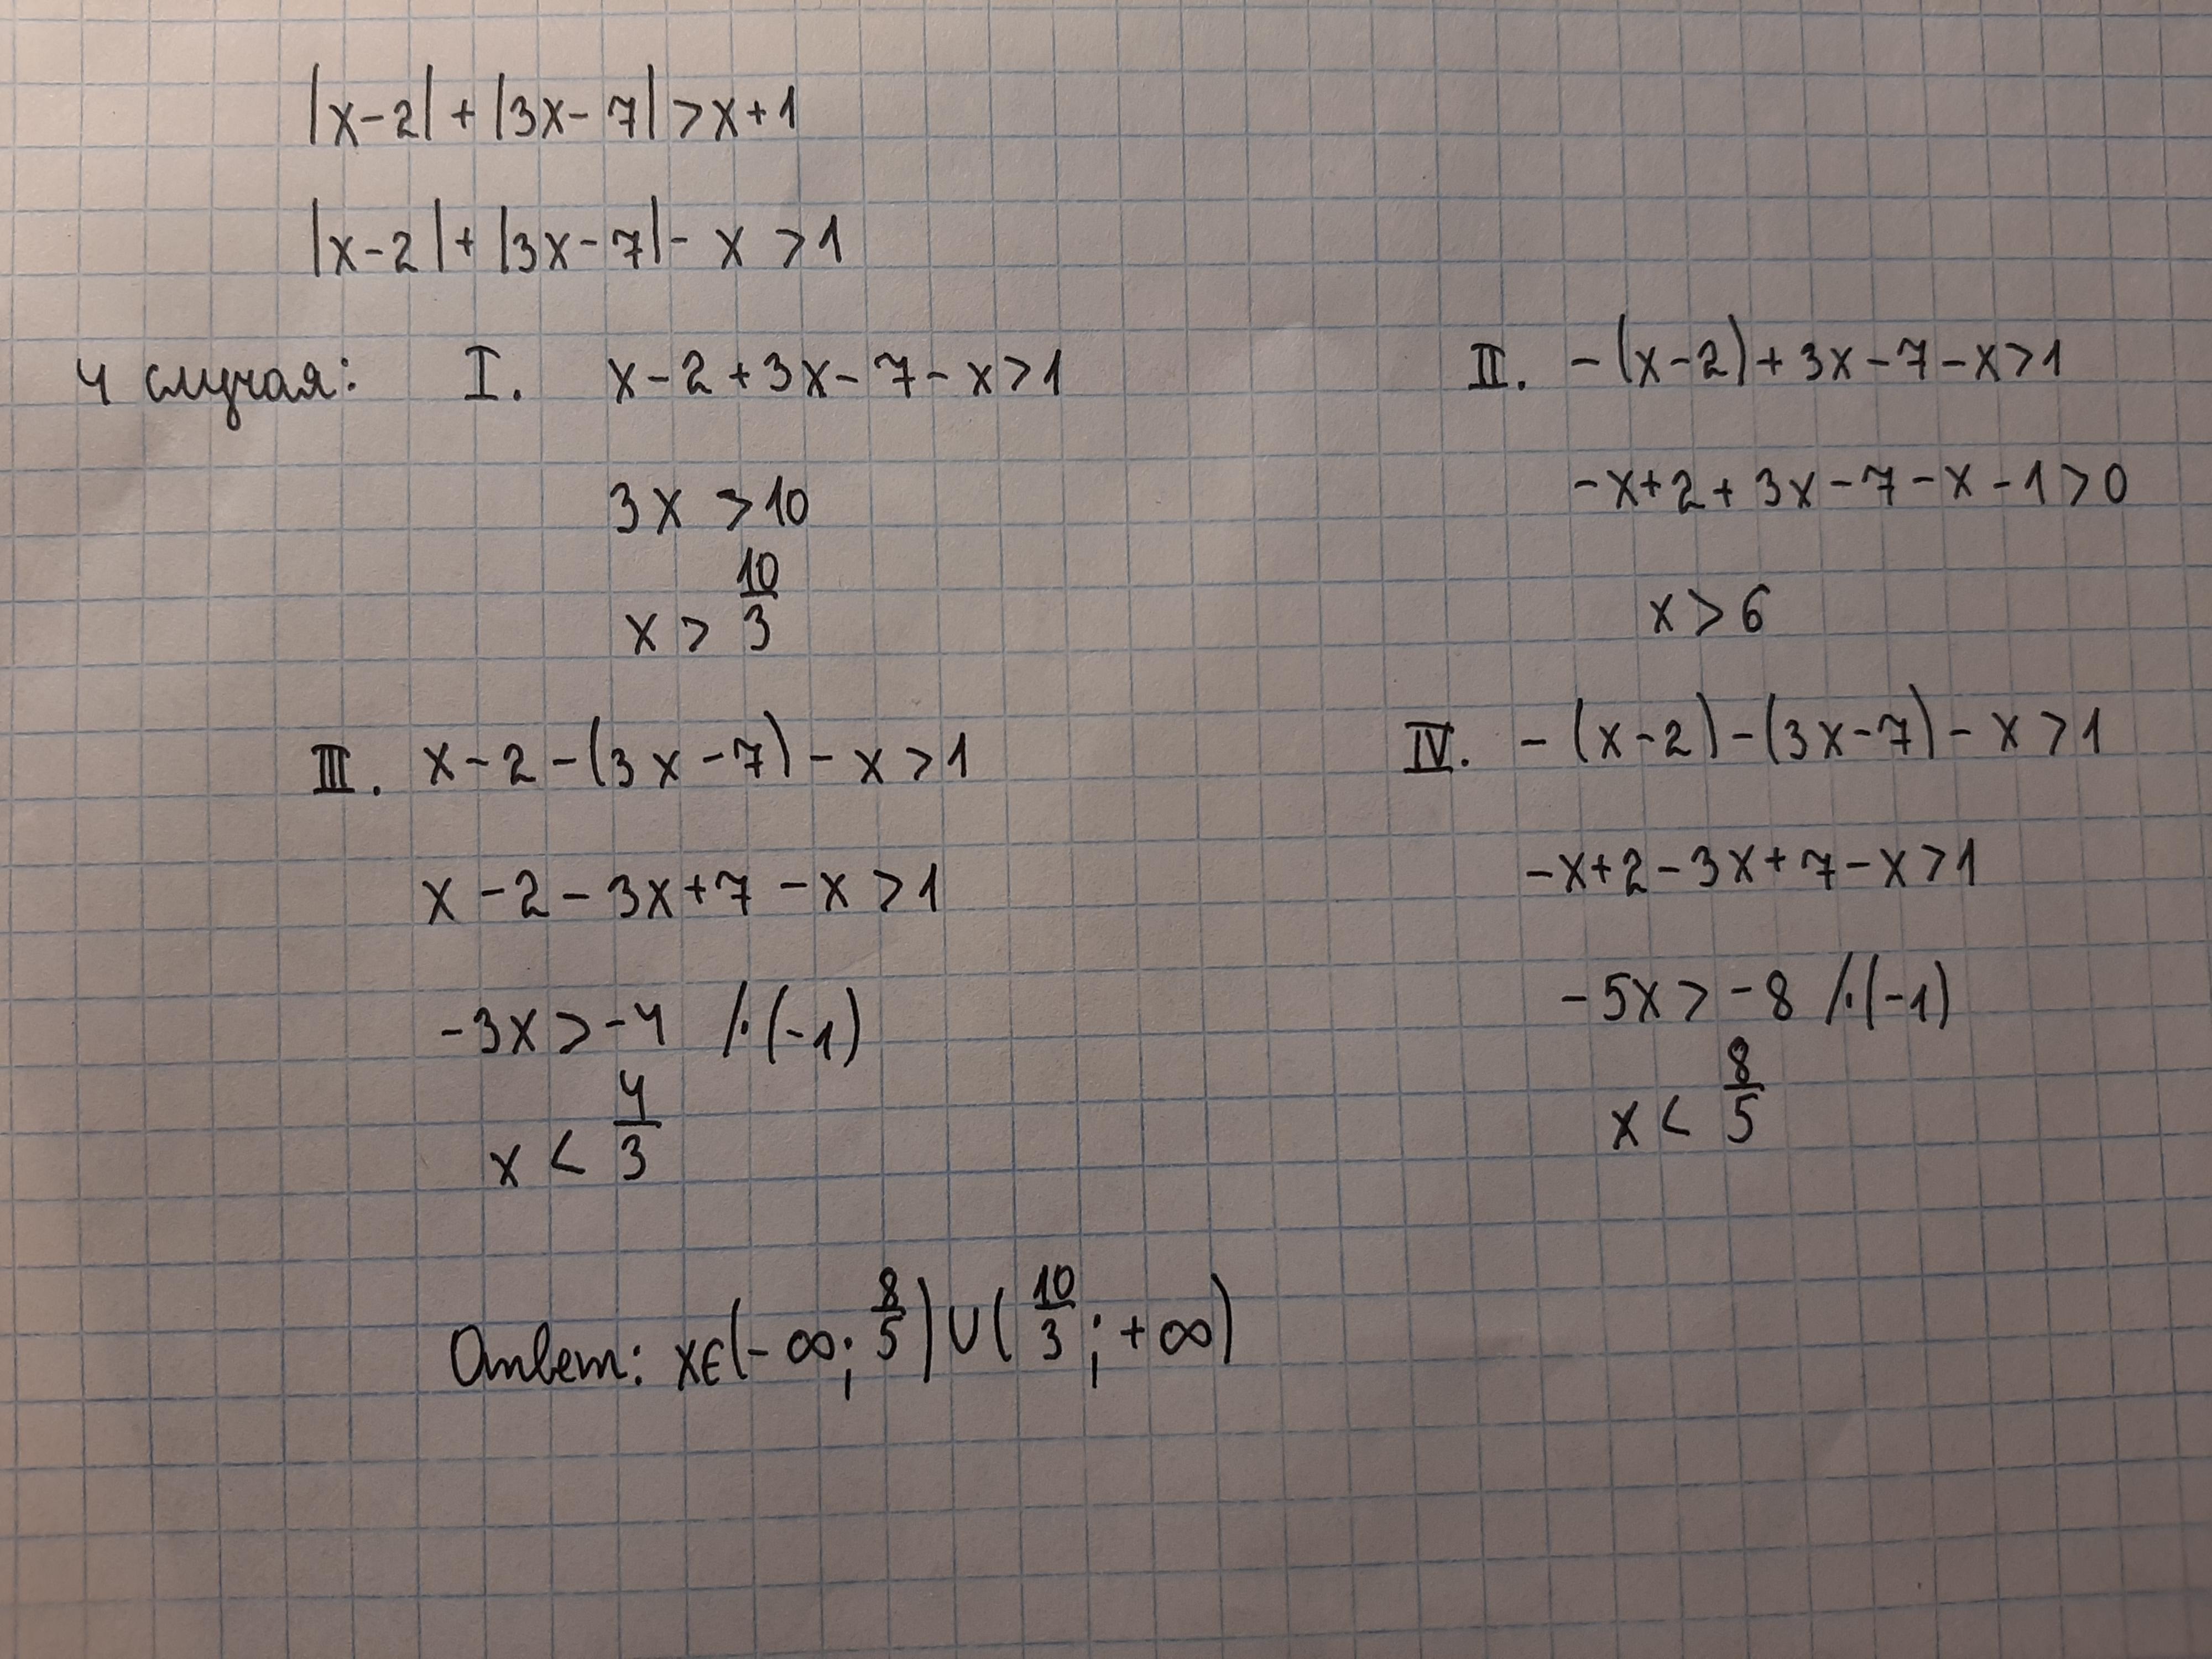 |x-2|+|3x-7|>x+1
|x-2|+|3x-7|-x>1
4 случая: I. x-2+3x-7-x>1
3x>10
x>10/3
II. -(x-2)+3x-7-x>1
-x+2+3x-7-x-1>0
x>6
III. x-2-(3x-7)-x>1
x-2-3x+7-x>1
-3x>-4 /·(-1)
x<4/3
IV. -(x-2)-(3x-7)-x>1
-x+2-3x+7-x>1
-5x>-8 /·(-1)
x<8/5
Ответ: x∈(-∞;8/5)∪(10/3;+∞)